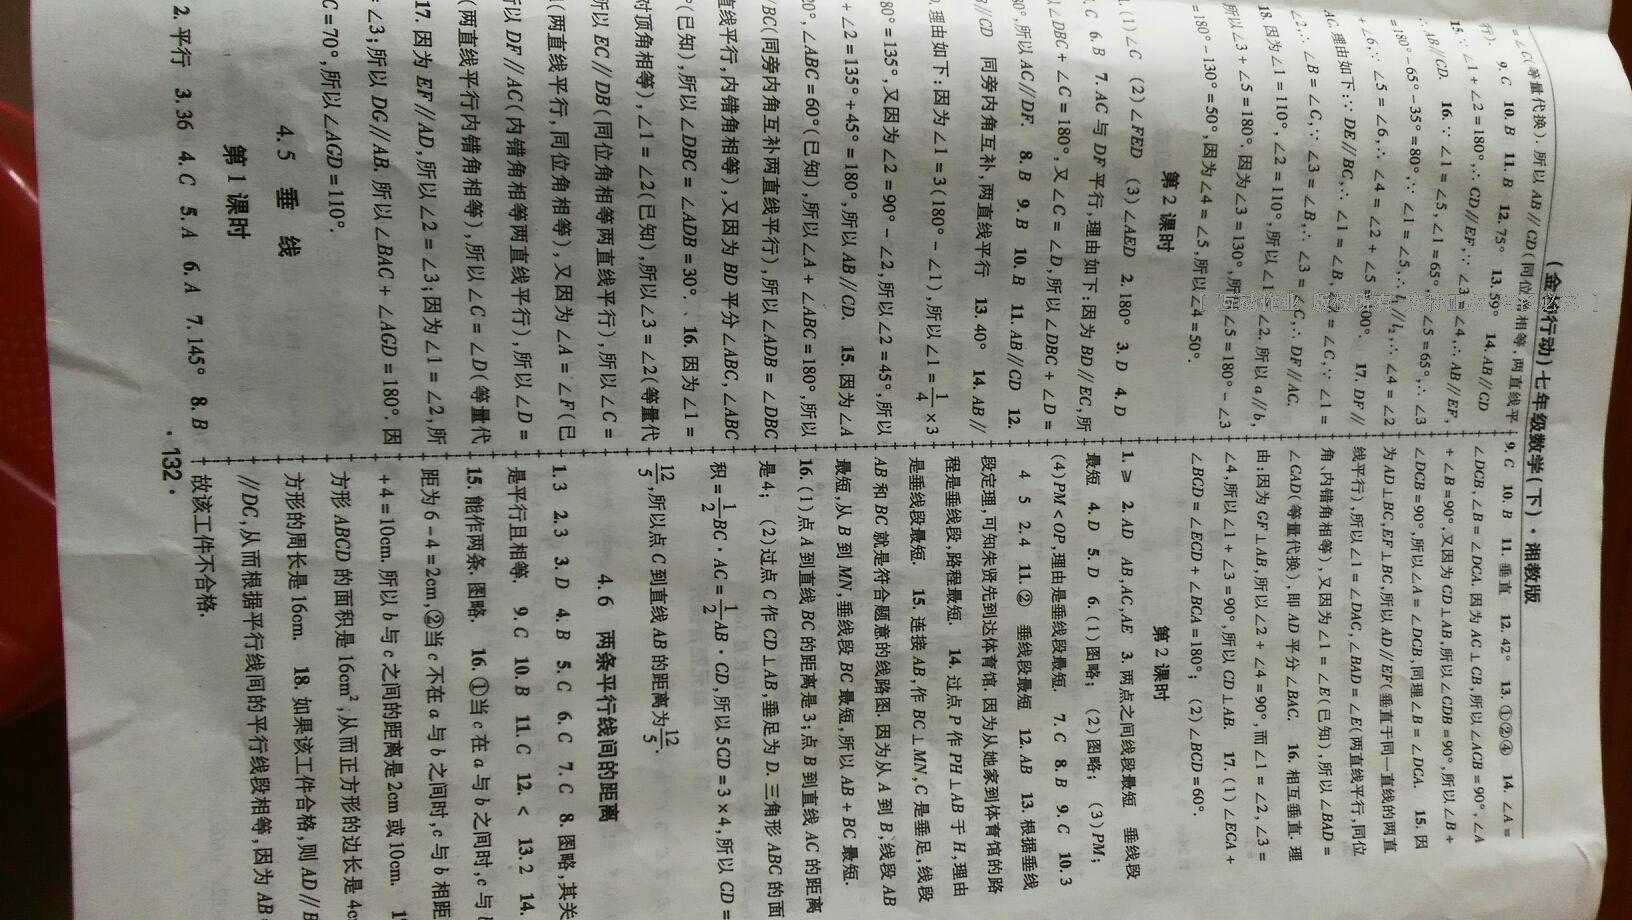 (金 行动)七年级数学(下)·湘教版
=∠C(等量代换).所以AB//CD(同位 相等,两直线平
行). 9.C 10.B 11.B 12.75° 13.59° 14.AB//CD
15.∵∠1+∠2=180°,∴CD//EF,∵∠3=∠4,∴AB//EF,
∴AB//CD. 16.∵∠1=∠5,∠1=65°, ∠5=65°,∴∠3
=180°-65°-35°=80°,∵∠1=∠5,∴l₁//l₂,∴∠4=∠2
+∠6,∵∠5=∠6,∴∠4=∠2+∠5= 00°. 17.DF//
AC.理由如下:∵DE//BC,∴∠1=∠B, =∠C,∵∠1=
∠2,∴∠B=∠C,∵∠3=∠B,∴∠3= C,∴DF//AC.
18.因为∠1=110°,∠2=110°,所以∠1 ∠2.所以a//b,
所以∠3+∠5=180°.因为∠3=130°,所 ∠5=180°-∠3
=180°-130°=50°,因为∠4=∠5,所以∠4=50°.
第2课时
1.(1)∠C (2)∠FED (3)∠AED 2.180° 3.D 4.D
C 6.B 7.AC与DF平行,理由如下:因为BD//EC,所
∠DBC+∠C=180°,又∠C=∠D,所以∠DBC+∠D=
80°,所以AC//DF. 8.B 9.B 10.B 11.AB//CD 12.
//CD 同旁内角互补,两直线平行 13.40° 14.AB//
理由如下:因为∠1=3(180°-∠1),所以∠1=1/4×3
80°=135°,又因为∠2=90°-∠2,所以∠2=45°,所以
+∠2=135°+45°=180°,所以AB//CD. 15.因为∠A
20°,∠ABC=60°(已知),所以∠A+∠ABC=180°,所以
BC(同旁内角互补两直线平行),所以∠ADB=∠DBC
直线平行,内错角相等),又因为BD平分∠ABC,∠ABC
°(已知),所以∠DBC=∠ADB=30°. 16.因为∠1=
对顶角相等),∠1=∠2(已知),所以∠3=∠2(等量代
所以EC//DB(同位角相等两直线平行),所以∠C=
(两直线平行,同位角相等),又因为∠A=∠F(已
以DF//AC(内错角相等两直线平行),所以∠D=
(两直线平行内错角相等),所以∠C=∠D(等量代
17.因为EF//AD,所以∠2=∠3;因为∠1=∠2,所
∠3;所以DG//AB.所以∠BAC+∠AGD=180°.因
C=70°,所以∠AGD=110°.
4.5 垂 线
第1课时
2.平行 3.36 4.C 5.A 6.A 7.145° 8.B
9.C 10.B 11.垂直 12.42° 13.①②④ 14.∠A=
∠DGB,∠B=∠DCA.因为AC⊥CB,所以∠ACB=90°,∠A
+∠B=90°,又因为CD⊥AB,所以∠CDB=90°,所以∠B+
∠DGB=90°,所以∠A=∠DGB,同理∠B=∠DCA. 15.因
为AD⊥BC,EF⊥BC,所以AD//EF(垂直于同一直线的两直
线平行),所以∠1=∠DAC,∠BAD=∠E(两直线平行,同位
角、内错角相等).又因为∠1=∠E(已知),所以∠BAD=
∠CAD(等量代换),即AD平分∠BAC. 16.相互垂直.理
由:因为GF⊥AB,所以∠2+∠4=90°,而∠1=∠2,∠3=
∠4,所以∠1+∠3=90°,所以CD⊥AB. 17.(1)∠ECA+
∠BCD=∠ECD+∠BCA=180°; (2)∠BCD=60°.
第2课时
1.≥ 2.AD AB,AC,AE 3.两点之间线段最短 垂线段
最短 4.D 5.D 6.(1)图略; (2)图略; (3)PM;
(4)PM<OP,理由是垂线段最短. 7.C 8.B 9.C 10.3
4 5 2.4 11.② 垂线段最短 12.AB 13.根据垂线
段定理,可知朱贤先到达体育馆.因为从她家到体育馆的路
程是垂线段,路程最短. 14.过点P作PH⊥AB于H,理由
是垂线段最短. 15.连接AB,作BC⊥MN,C是垂足,线段
AB和BC就是符合题意的线路图.因为,从A到B,线段AB
最短,从B到MN,垂线段BC最短,所以AB+BC最短.
16.(1)点A到直线BC的距离是3;点B到直线AC的距离
是4; (2)过点C作CD⊥AB,垂足为D.三角形ABC的面
积=1/2BC·AC=1/2AB·CD,所以5CD=3×4,所以CD=
12/5,所以点C到直线AB的距离为12/5.
4.6 两条平行线间的距离
1.3 2.3 3.D 4.B 5.C 6.C 7.C 8.图略,其关
是平行且相等. 9.C 10.B 11.C 12.< 13.2 14.
15.能作两条.图略. 16.①当c在a与b之间时,c与
距为6-4=2cm,②当c不在a与b之间时,c与b相距
+4=10cm.所以b与c之间的距离是2cm或10cm.
方形ABCD的面积是16cm²,从而正方形的边长是4c
方形的周长是16cm. 18.如果该工件合格,则AD//B
//DC,从而根据平行线间的平行线段相等,因为AB
故该工件不合格.
·132·